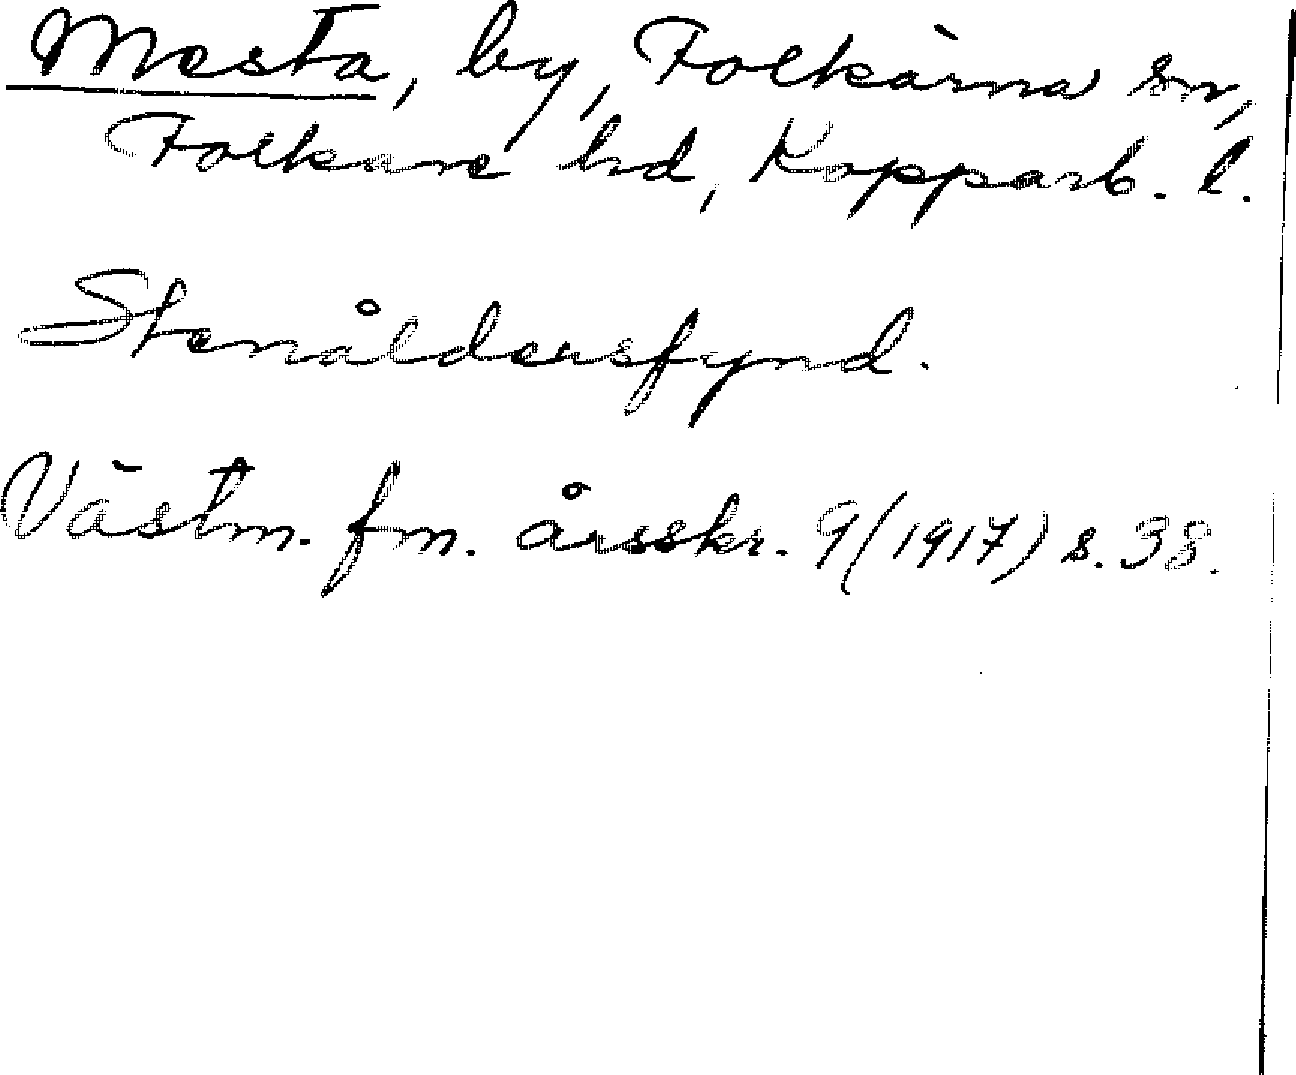 Mesta, by, Folkärna sn,
Folkare hd, Kopparb. l.
Stenåldersfynd.
Västm. fm. årsskr. 9 (1917) s. 38.